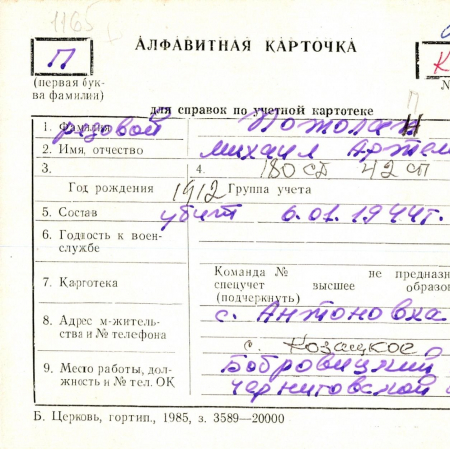 1165
АЛФАВИТНАЯ КАРТОЧКА
П
К
(первая бук-
ва фамилии)
№
для справок по учетной картотеке
1. Фамилия рядовой
2. Имя, отчество Михаил Артем
3. 4. 180 сд 42 сп
Год рождения 1912 Группа учета
5. Состав убит 6.01.1944г.
6. Годность к воен-
службе
7. Картотека
Команда № не предназн
спецучет высшее образо
(подчеркнуть)
8. Адрес м-житель-
ства и № телефона
с. Антоновка
с. Козацкое
9. Место работы, дол-
жность и № тел. ОК
Бобровицкий
Черниговской
Б. Церковь, гортип., 1985, з. 3589—20000